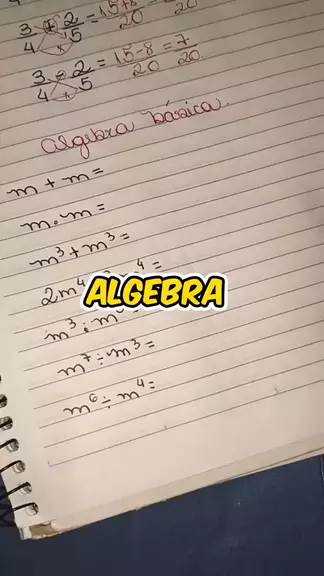 3/4 + 2/5 = 15+8/20 =
3/4 - 2/5 = 15-8/20 = 7/20
Algebra básica.
m + m =
m . m =
m³ + m³ =
2m⁴ ⁴ =
ALGEBRA
m³ . m
m⁷ ÷ m³ =
m⁶ ÷ m⁴ =